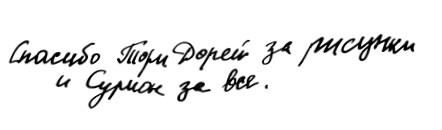 Спасибо Тори Дорей за рисунки
и Сурион за все.